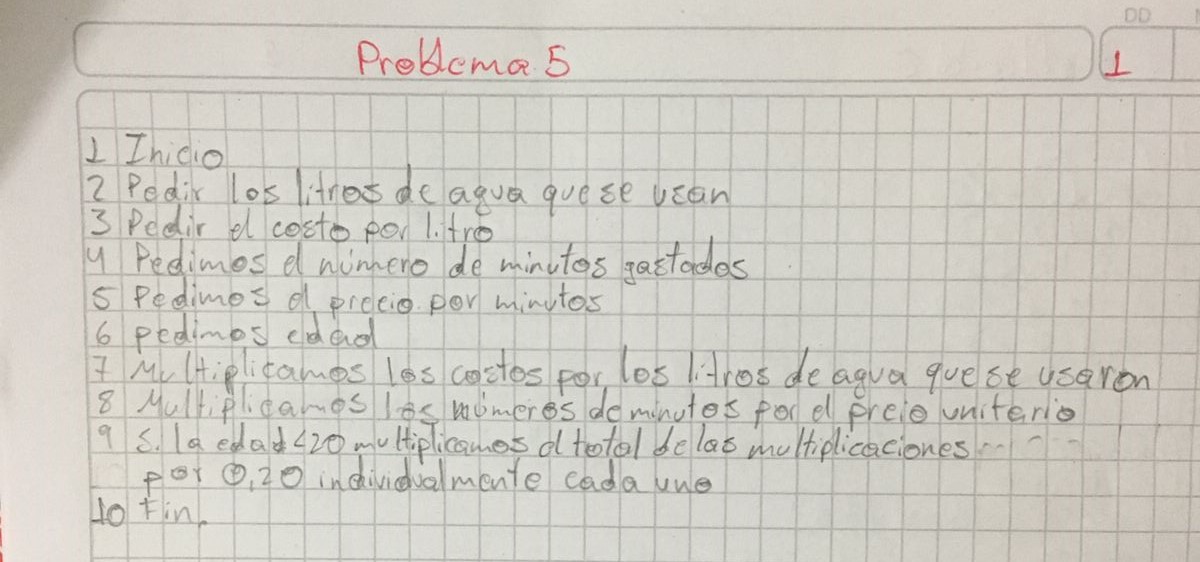 DD
Problema 5
1
1 Inicio
2 Pedir los litros de agua que se usan
3 Pedir el costo por litro
4 Pedimos el número de minutos gastados
5 Pedimos el precio por minutos
6 pedimos edad
7 Multiplicamos los costos por los litros de agua que se usaron
8 Multiplicamos los números de minutos por el preio uniterio
9 Si la edad <20 multiplicamos el total de las multiplicaciones
por 0,20 individualmente cada uno
10 Fin.